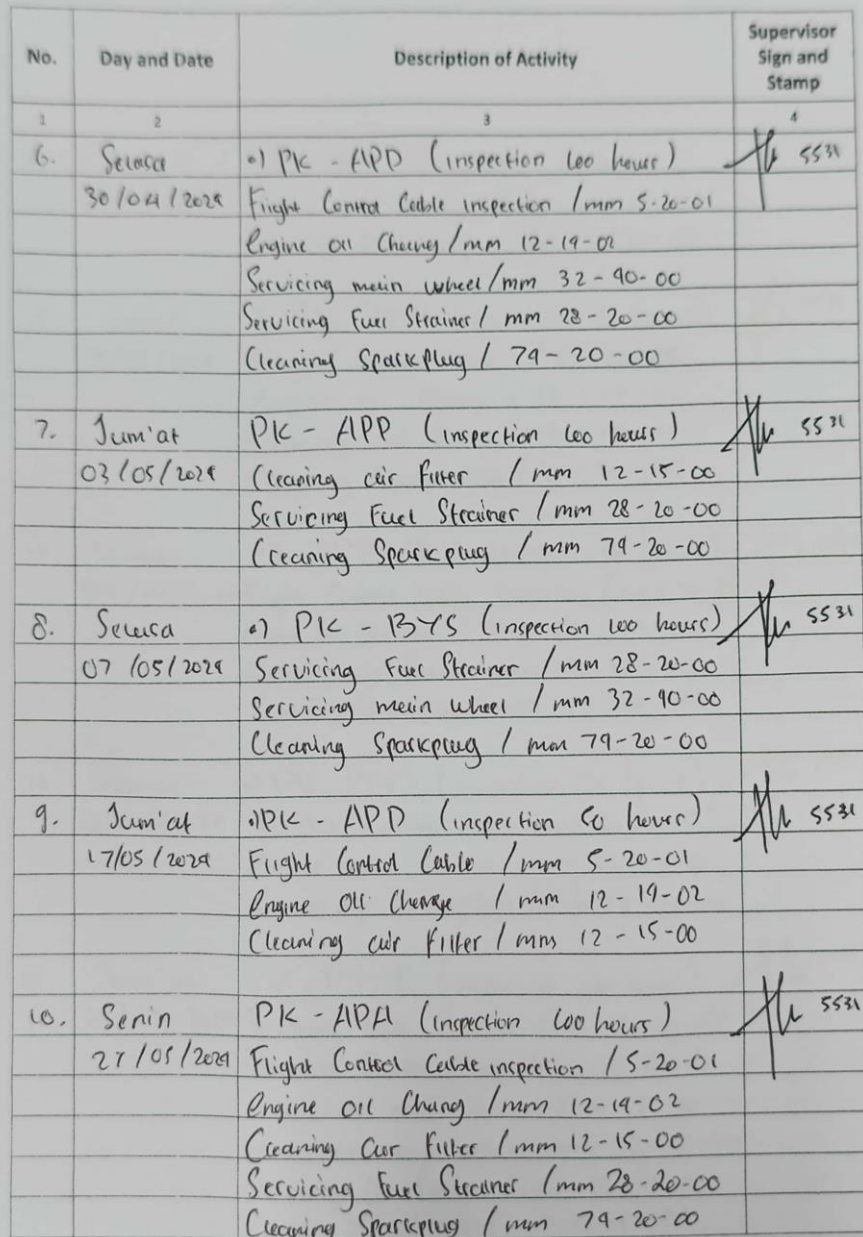 No. Day and Date Description of Activity Supervisor Sign and Stamp
1 2 3 4
6. Selasa •) PK - APD (inspection 100 hours) 5531
30/04/2024 Flight Control Cable inspection / mm 5-20-01
Engine Oil Chang / mm 12-19-02
Servicing main wheel / mm 32-40-00
Servicing Fuel Strainer / mm 28-20-00
Cleaning Sparkplug / 74-20-00
7. Jum'at PK - APP (inspection 100 hours) 5531
03/05/2024 Cleaning air Filter / mm 12-15-00
Servicing Fuel Strainer / mm 28-20-00
Cleaning Sparkplug / mm 74-20-00
8. Selasa •) PK - BYS (inspection 100 hours) 5531
07/05/2024 Servicing Fuel Strainer / mm 28-20-00
Servicing main wheel / mm 32-40-00
Cleaning Sparkplug / mm 74-20-00
9. Jum'at •) PK - APD (inspection 50 hours) 5531
17/05/2024 Flight Control Cable / mm 5-20-01
Engine Oil Change / mm 12-19-02
Cleaning air Filter / mm 12-15-00
10. Senin PK - APA (inspection 100 hours) 5531
27/05/2024 Flight Control Cable inspection / 5-20-01
Engine Oil Chang / mm 12-19-02
Cleaning air Filter / mm 12-15-00
Servicing Fuel Strainer / mm 28-20-00
Cleaning Sparkplug / mm 74-20-00